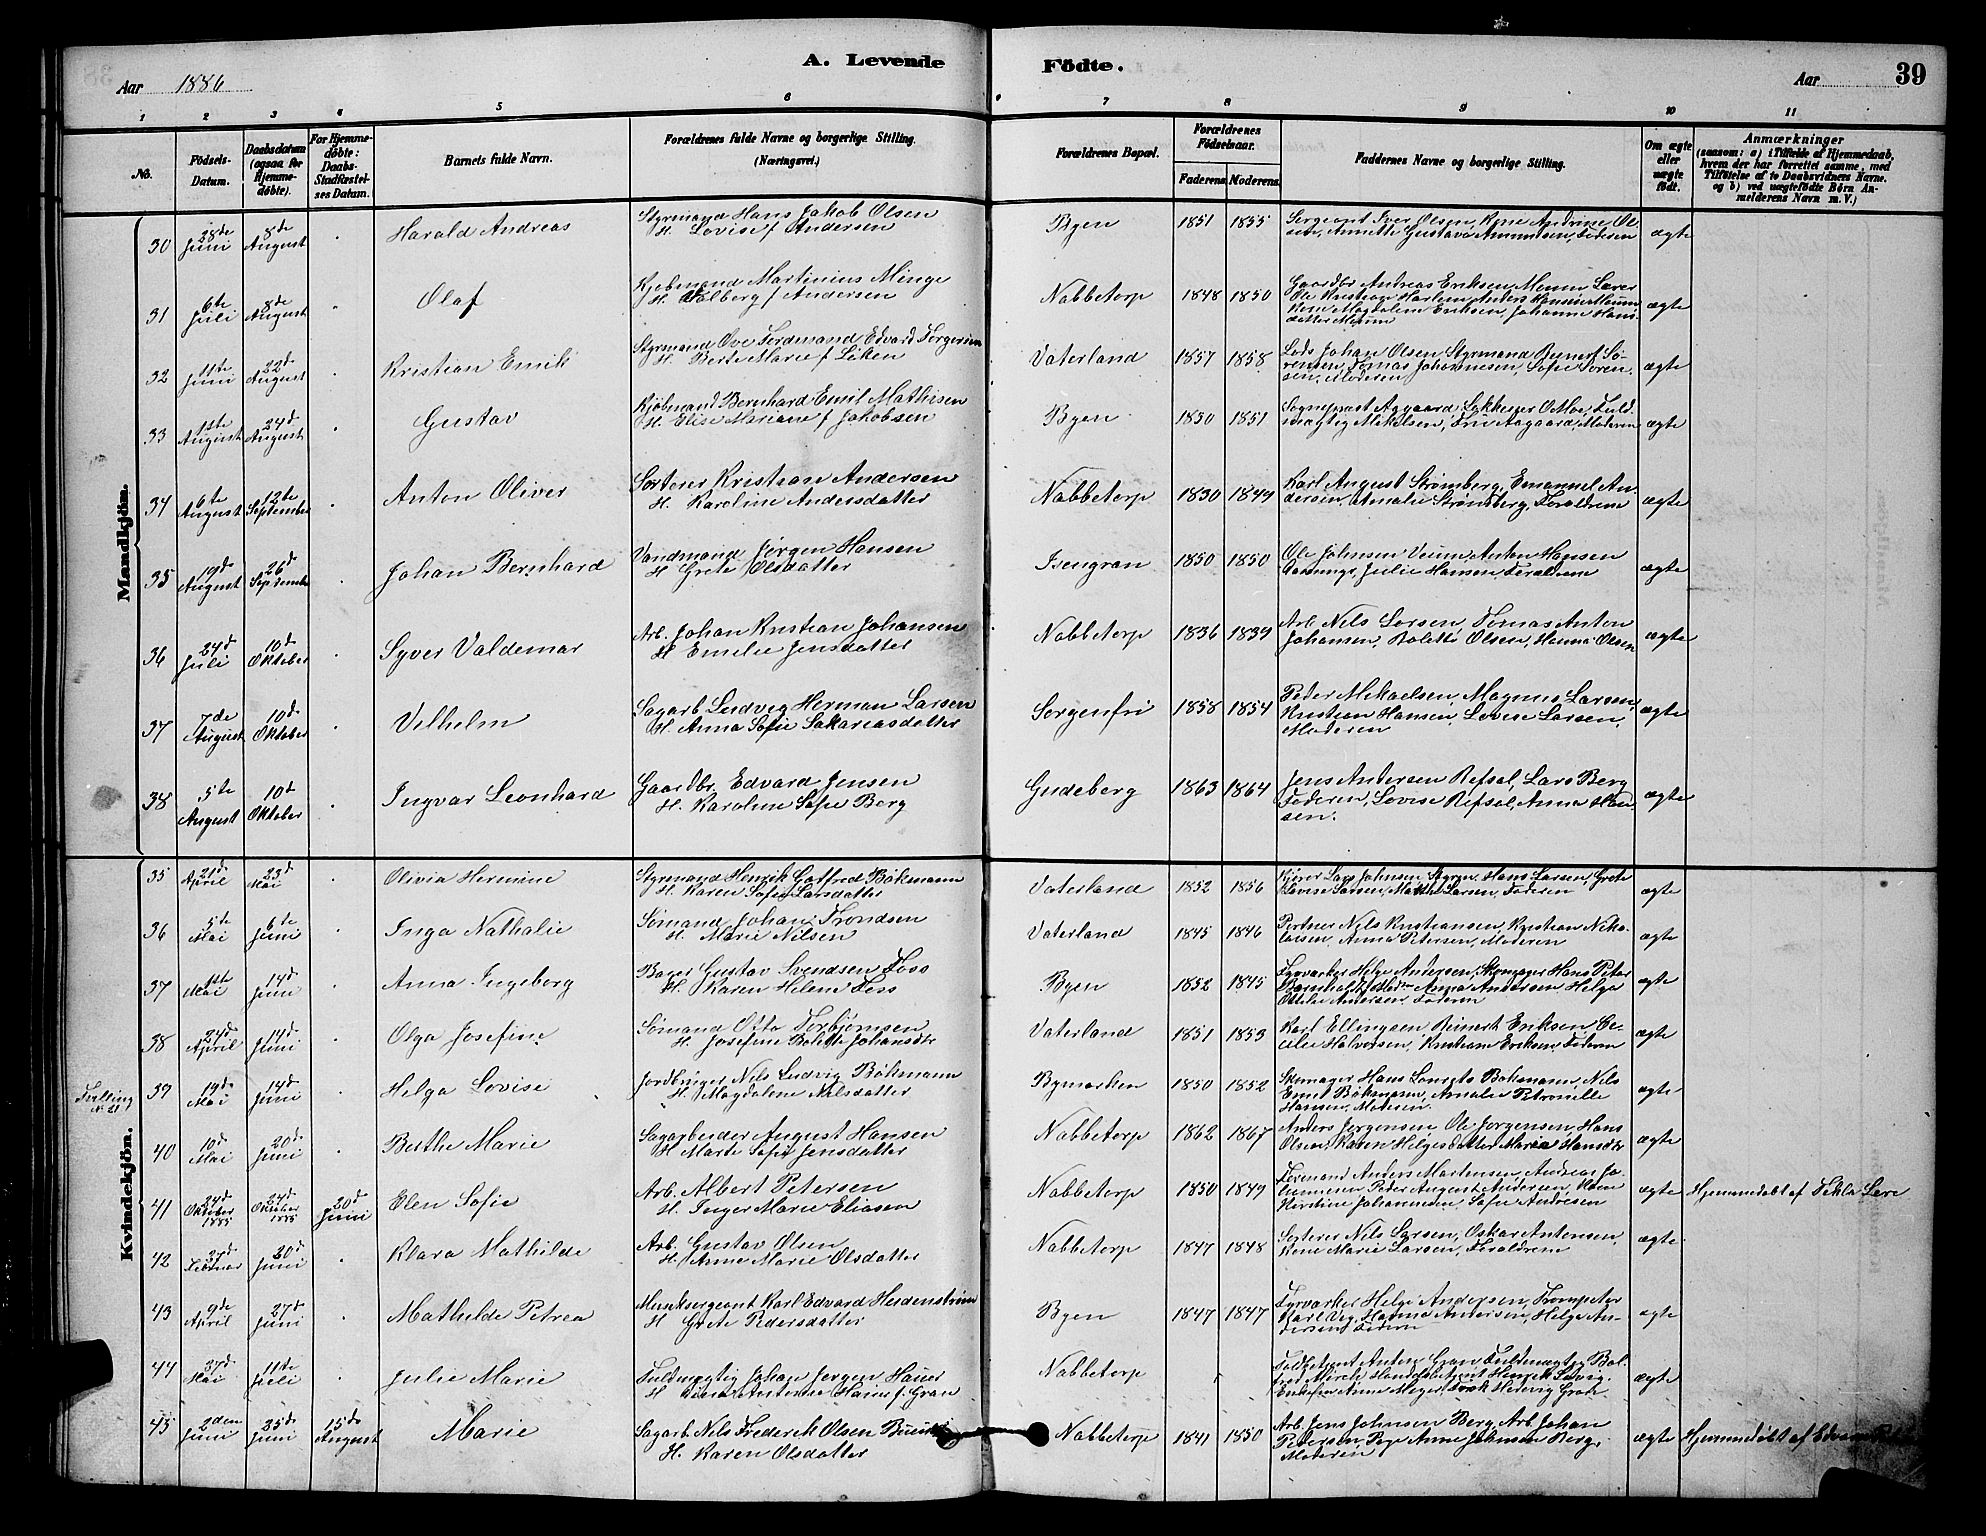 A. Levende Födte.
39
Aar 1886
Aar
1 2 3 4 5 6 6 7 8 9 10 11
No.
Födsels-Datum.
Daabsdatum (ogsaa for Hjemmedøbte).
For Hjemmedøbte: Daabs-Stadfæstelses Datum.
Barnets fulde Navn.
Forældrenes fulde Navne og borgerlige Stilling. (Næringsvei.)
Forældrenes Bopæl.
Forældrenes Födselsaar.
Faderens. Moderens.
Faddernes Navne og borgerlige Stilling.
Om ægte eller uægte födt.
Anmærkninger
(saasom: a) i Tilfælde af Hjemmedaab, hvem der har forrettet samme, med Tilföielse af to Daabsvidners Navne. og b) ved uægtefödte Börn Anmelderens Navn m. V.)
Mandkjön.
30 28de Juni 8de August Harald Andreas
Styrmand Hans Jakob Olsen
H. Lovise f. Andersen
Byen 1851 1855
Sergeant Iver Olsen, Rene Andrine Ol-
sen, Annette Gustava Ammundsen, Faderen
ægte
31 6te Juli 8de August Olaf
Kjøbmand Martinius Minge
H. Valberg f. Andersen
Nabbetorp 1848 1850
Gaardbr Andreas Eriksen Menum Lærer
Ole Kristian Harlem, Anders
Magdalene Eriksen, Johanne Hans-
datter
ægte
32 11te Juni 22d August Kristian Emil
Styrmand Ove Ferdinand Edvard Torgersen
H. Berte Marie f. Liken
Vaterland 1857 1858
Lods Johan Olsen Styrmand Bernt Sø-
rensen, Tomas Johannesen, Sofie Søren-
sen, Moderen
ægte
33 1ste August 24d August Gustav
Kjøbmand Bernhard Emil Mathisen
H. Elise Mariane f. Jakobsen
Byen 1850 1851
Sogneprest Aagaard, O Moe, Fuld-
mægtig Mikelsen, Fru Aagaard, Moderen
ægte
34 6te August 12te September Anton Oliver
Sorterer Kristian Andersen
H. Karoline Andersdatter
Nabbetorp 1830 1849
Karl August Strömberg, Emanuel An-
dersen, Amalie Strömberg, Foraldrene
ægte
35 19d August 26d September Johan Bernhard
Vandmand Jörgen Hansen
H Grete Olsdatter
Isengran 1850 1850
Ole Johnsen Veum, Anton Hansen
Julie Hansen, Foraldrene
ægte
36 24d Juli 10d Oktober Syver Valdemar
Arb. Johan Kristian Johansen
H Emelie Jensdatter
Nabbetorp 1836 1839
Arb Nils Larsen, Tomas Anton
Johansen, Bolette Olsen, Hanna Olsen
ægte
37 7de August 10d Oktober Vilhelm
Sagarb Ludvig Herman Larsen
H. Anna Sofie Sakariasdatter
Sorgenfri 1858 1854
Peder Mikaelsen, Magnus Larsen,
Kristian Hansen, Lovise Larsen,
Moderen
ægte
38 5te August 10d Oktober Ingvar Leonhard
Gaardbr. Edvard Jensen
H. Karoline Sofie Berg
Gudeberg 1863 1864
Jens Andersen Refsal, Lars Berg
Faderen, Lovise Refsal, Anna Han-
sen.
ægte
Kvindekjön.
35 21d April 23d Mai Olivia Hermine
Styrmand Henrik Gotfred Bökmann
H. Karen Sofie Larsdatter
Vaterland 1852 1856
Kjører Lars Johnsen Styrm. Hans Larsen, Grete
Larsen, Mathis Larsen, Faderen
ægte
36 5te Mai 6te Juni Inga Nathalie
Sømand Johan Trondsen
H. Marie Nilsen
Vaterland 1845 1846
Portner Nils Kristiansen, Kristian Niko-
laisen, Anna Petersen, Moderen
ægte
37 1ste Mai 14d Juni Anna Ingeborg
Bager Gustav Svendsen Foss
H. Karen Helene Foss
Byen 1852 1845
Fyrvarker Helge Andersen, Skomager Hans Peter
Anna Andersen Helga
Ottilie Andersen Faderen
ægte
38 24d April 14d Juni Olga Josefine
Sømand Otto Torbjørnsen
H. Josefine Bolette Johansdtr
Vaterland 1851 1853
Karl Ellingsen Reinert Eriksen Ce-
cilie Halvorsen, Kristiane Eriksen, Faderen
ægte
Tvilling No 21
39 19de Mai 14d Juni Helga Lovise
Jordbruger Nils Ludvig Bökmann
H. Magdalene Nilsdatter
Bymarken 1850 1852
Skomager Hans Bökmann, Nils
Emil Bökmann, Amalie Petronille
Hansen, Moderen.
ægte
40 10d Mai 20d Juni Berthe Marie
Sagarbeider August Hansen
H Marte Sofie Jensdatter
Nabbetorp 1862 1867
Anders Jørgensen Ole Jørgensen, Hans
Olsen, Karen Helgesdatter Maria Hansdtr
ægte
41 24d Oktober 1885 24d Oktober 1885 20d Juni Elen Sofie
Arb. Albert Petersen
H. Inger Marie Eliasen
Nabbetorp 1850 1849
Formand Anders Martensen, Andreas Jo-
hannesen Peder August Andersen,
Johannesen, Sofie Andresen
ægte Hjemmedøbt af Tekla
42 27d Februar 20d Juni Klara Mathilde
Arb. Gustav Olsen
H. Anne Marie Olsdatter
Nabbetorp 1847 1848
Sorterer Nils Larsen, Oskar Antonsen,
Rene Marie Larsen, Foraldrene
ægte.
43 9de April 27d Juni Mathilde Petrea
Musiksergeant Karl Edvard Heidenström
H Grete Pedersdatter
Byen 1847 1847
Fyrvarker Helge Andersen, Trompeter
Karl Vig, Hanna Andersen, Helga An-
dersen, Faderen
ægte
44 Mai 11te Juli Julie Marie
Fuldmægtig Johan Jørgen Hauer
H. Antonie Hauer f. Gran
Nabbetorp
Toldbetjent Anton Gran, Fuldmægtig
Handelsbetjent Henrik
Anne Meyer, Frøk Hedevig Gran
ægte
45 2den Juni 25d Juni 15de August Marie
Sagarb Nils Frederik Olsen
H. Karen Olsdatter
Nabbetorp 1841 1850
Arb. Jens Johnsen Berg, Arb. Johan
Petersen, Pige Anne Johnsen Berg,
Moderen
ægte Hjemmedøbt af Edvard